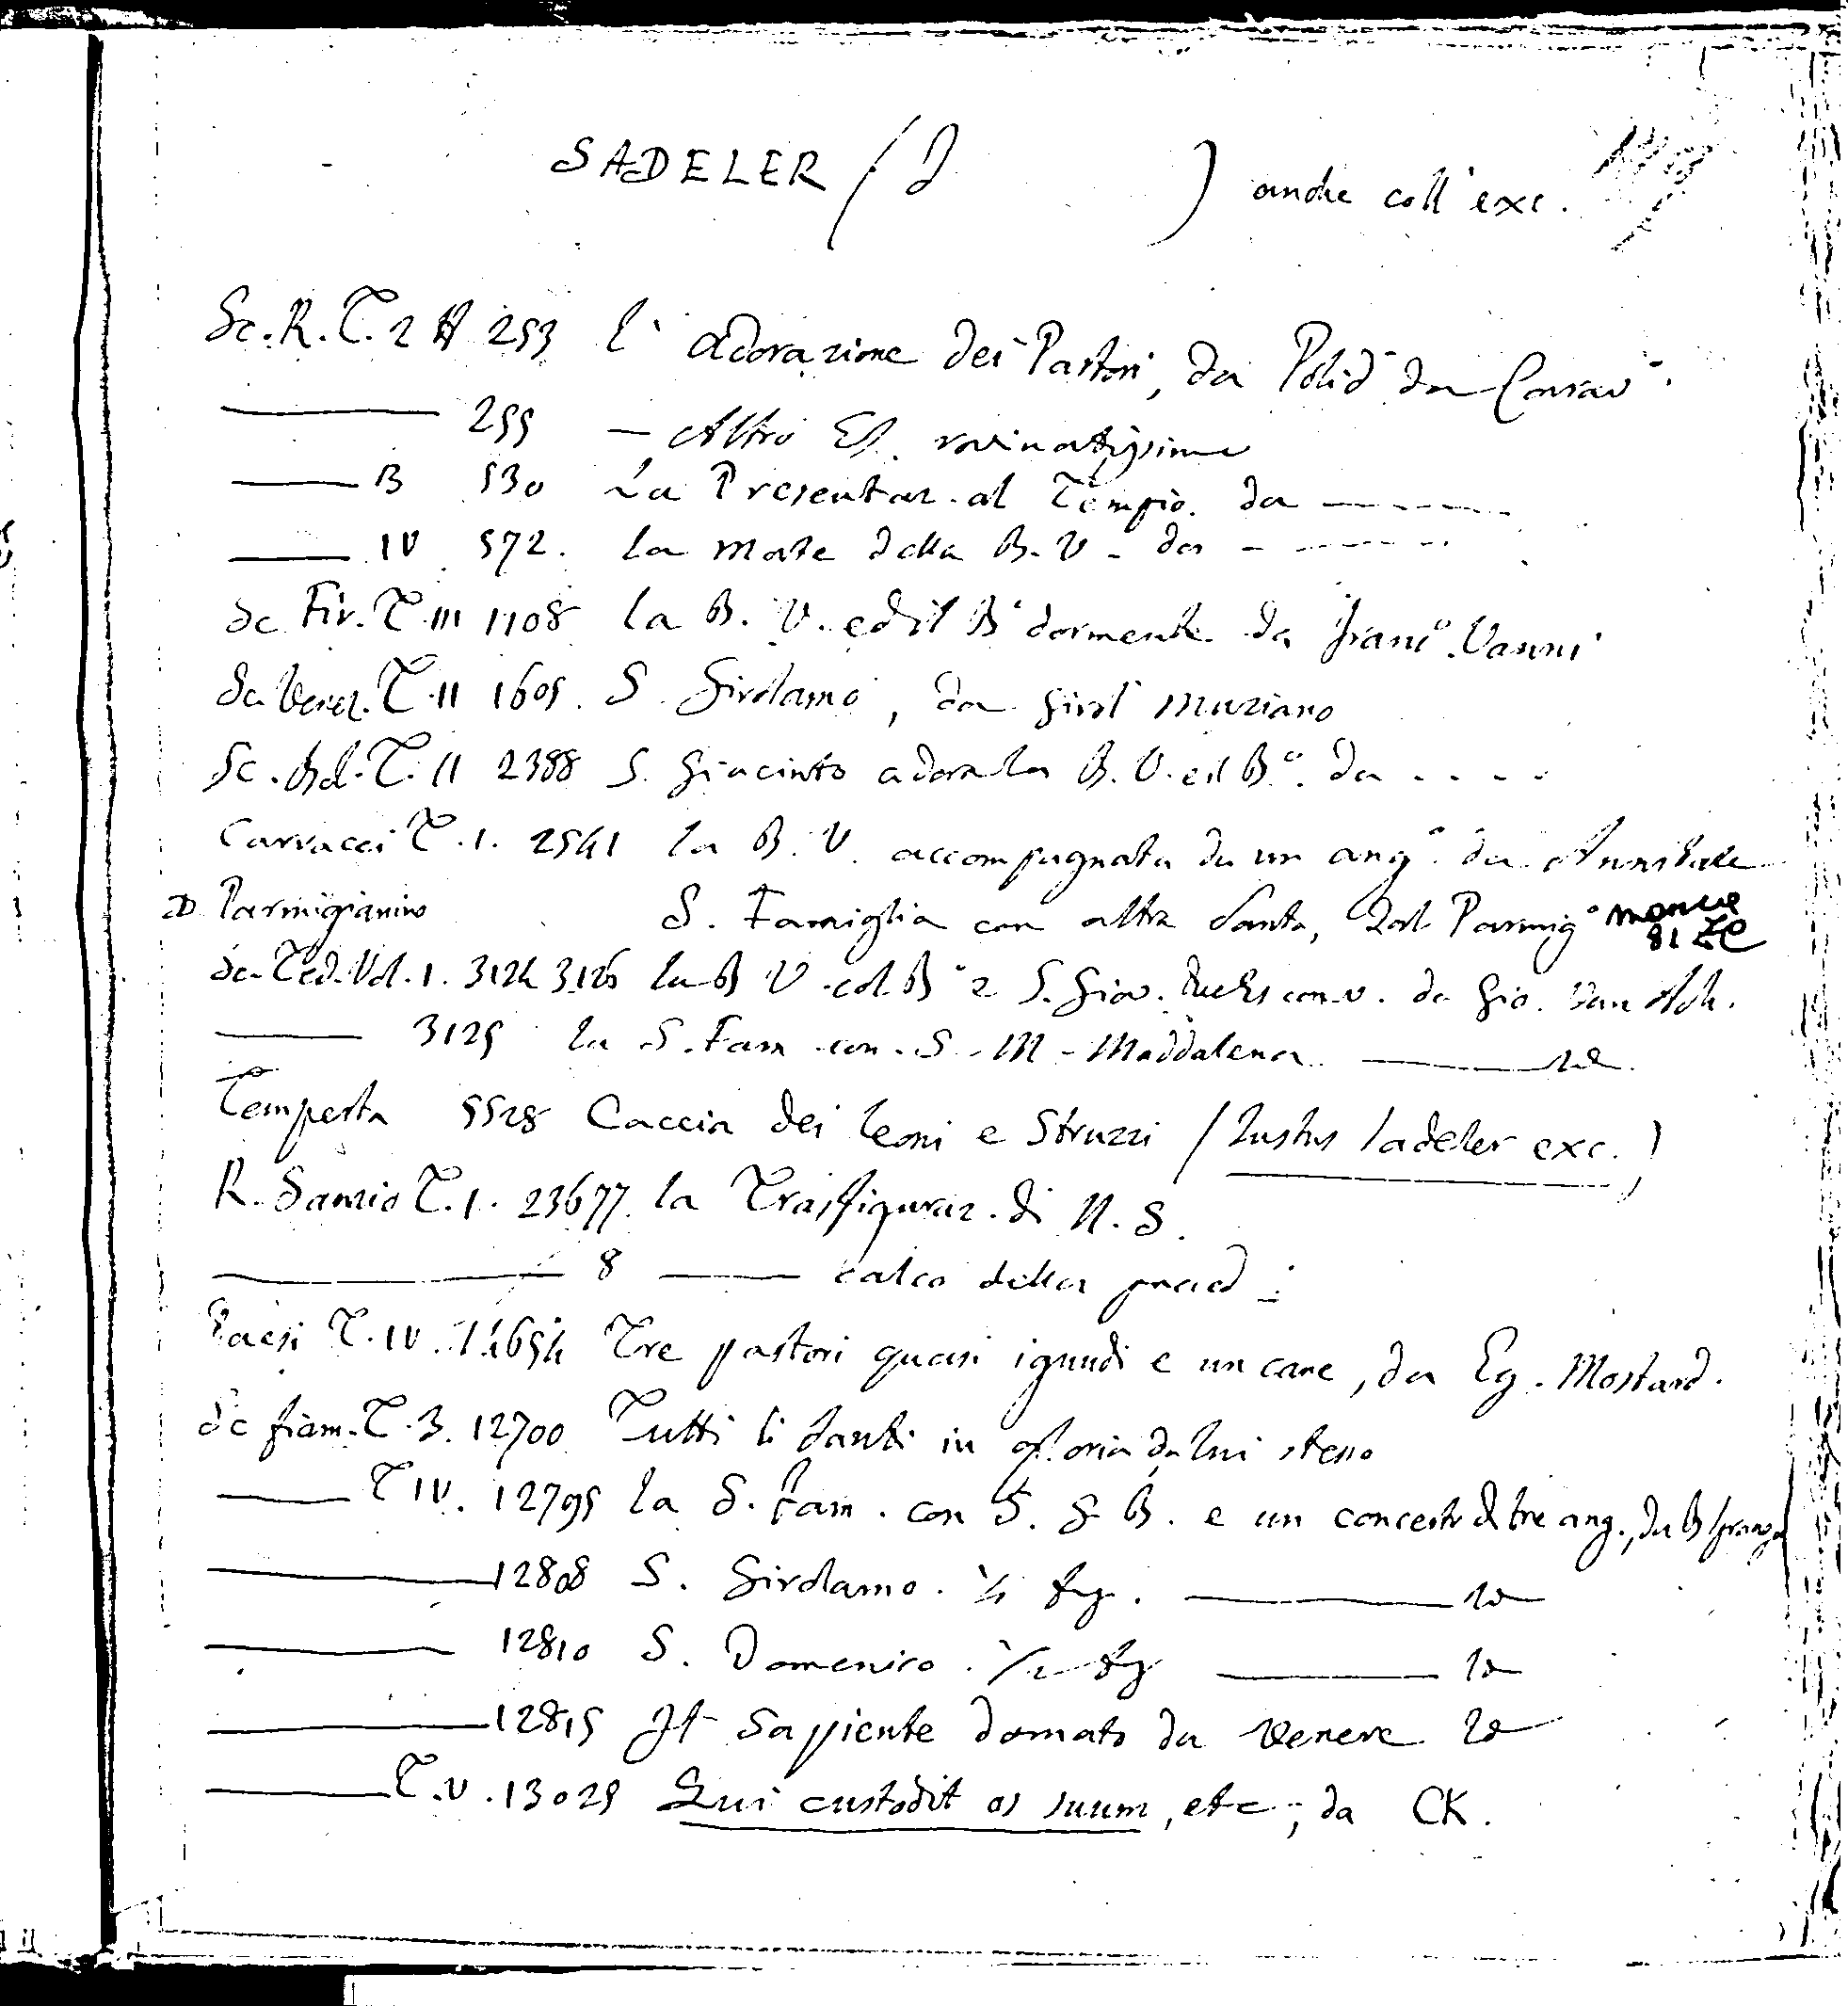 SADELER (J ) anche coll'exc.
Sc. R. T. 2 A 253 L'Adorazione dei Pastori, da Polid° da Carav°.
——— 255 — Altro Es. rovinatissimo
—— B 530 La Presentaz. al Tempio. da - - - - - -
—— IV 572. la Morte della B. V - da - - - - - - -
Sc. Fir. T. III 1108 la B. V. ed il B° dormente da Franc° Vanni
Sc. Venez. T. II 1605. S. Girolamo, da Girol° Muziano
Sc. Bol. T. II 2388 S. Giacinto adora la B. V. e il B°. da - - - -
Carracci T. 1. 2541 la B. V. accompagnata da un ang° da Annibale
Parmigianino S. Famiglia con altra Santa, dal Parmig°
Sc. Ted. Vol. 1. 3124 3126 la B V col B° e S. Giov. da Gio. Van Ach.
—— 3125 la S. Fam. con S. M. Maddalena ——— id.
Tempesta 5528 Caccia dei leoni e Struzzi (Iustus Sadeler exc.)
R. Sanzio T. 1. 23677 la Trasfiguraz. di N. S.
———— 8 —— calco della preced.
Paesi T. IV. 11654 Tre pastori quasi ignudi e un cane, da Eg. Mostard.
Sc fiam. T. 3. 12700 Tutti li Santi in gloria da lui stesso
—— T IV. 12795 la S. Fam. con S. G B. e un concerto di tre ang., da B Sprang
———— 12808 S. Girolamo. ½ fig. ———— id
———— 12810 S. Domenico. ½ fig ——— id
———— 12815 Il Sapiente domato da Venere id
——— T. V. 13025 Qui custodit os suum, etc, da CK.